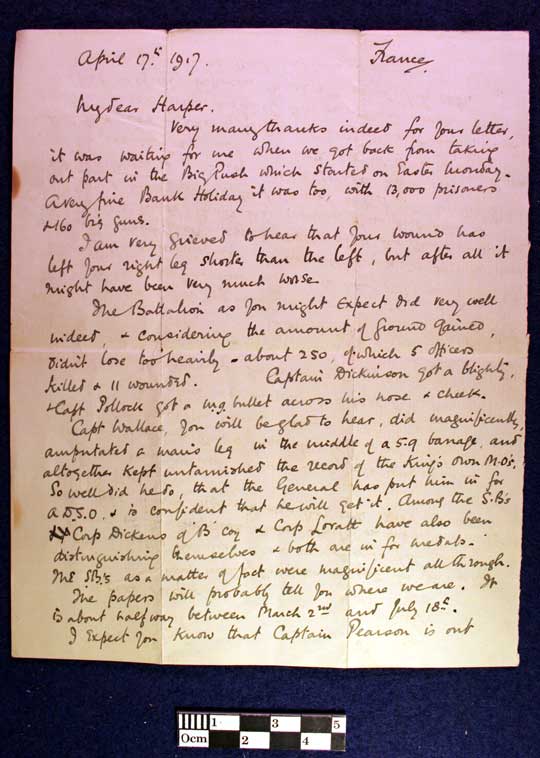 April 17th 1917. France,
My dear Harper.
Very many thanks indeed for your letter,
it was waiting for me when we got back from taking
our part in the Big Push which started on Easter Monday.
A very fine Bank Holiday it was too, with 13,000 prisoners
& 160 big guns.
I am very grieved to hear that your wound has
left your right leg shorter than the left, but after all it
might have been very much worse.
The Battalion as you might expect did very well
indeed, & considering the amount of ground gained,
didn't lose too heavily - about 250, of which 5 officers
killed & 11 wounded. Captain Dickinson got a blighty,
& Capt Pollock got a m.g. bullet across his nose & cheek.
Capt Wallace, you will be glad to hear, did magnificently,
amputated a man's leg in the middle of a 5.9 barrage, and
altogether kept untarnished the record of the King's Own M.O's.
So well did he do, that the General has put him in for
a D.S.O. & is confident that he will get it. Among the S.B's
Corp Dickens of 'B' Coy & Corp Loratt have also been
distinguishing themselves & both are in for medals.
The S.B's as a matter of fact were magnificent all through.
The papers will probably tell you where we are. It
is about halfway between March 2nd and July 18th.
I expect you know that Captain Pearson is out
0cm 1 2 3 4 5